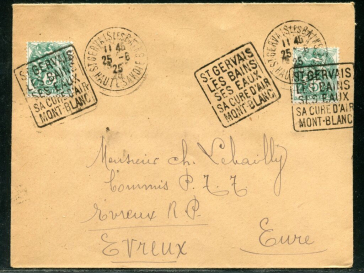 ST GERVAIS LES BAINS
11 45
25 - 8
25
HAUTE SAVOIE
ST GERVAIS
LES BAINS
SES EAUX
SA CURE D'AIR
MONT-BLANC
ST GERVAIS
LES BAINS
SES EAUX
SA CURE D'AIR
MONT-BLANC
ST GERVAIS LES BAINS
11 45
25
ST GERVAIS
LES BAINS
SES EAUX
SA CURE D'AIR
MONT-BLANC
Monsieur Ch. Lehailly
Commis P.T.T
Evreux R.P.
Evreux
Eure